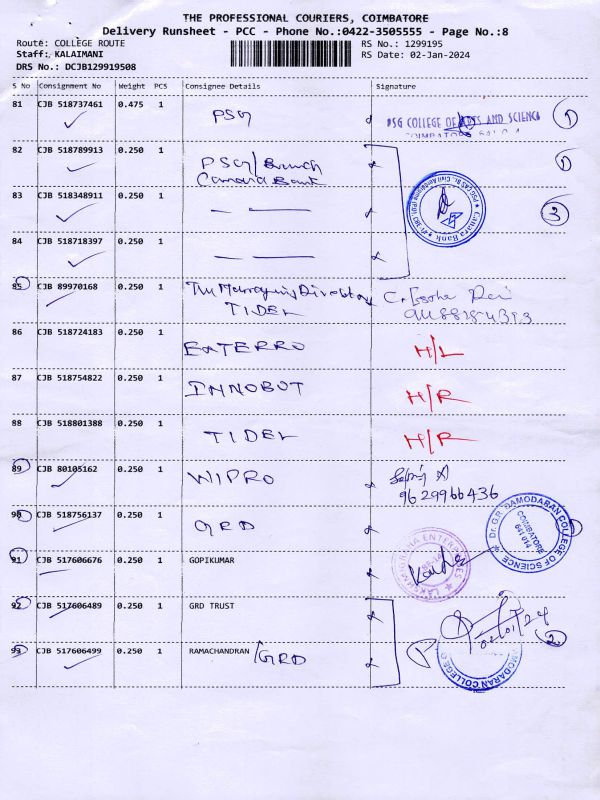 THE PROFESSIONAL COURIERS, COIMBATORE
Delivery Runsheet - PCC - Phone No.:0422-3505555 - Page No.:8
Route: COLLEGE ROUTE
RS No.: 1299195
Staff: KALAIMANI
RS Date: 02-Jan-2024
DRS No.: DCJB129919508
S No Consignment No Weight PCS Consignee Details Signature
81 CJB 518737461 0.475 1 PSG
PSG COLLEGE OF ARTS AND SCIENCE
1
82 CJB 518789913 0.250 1 PSG/Branch
Canara Bank
1
83 CJB 518348911 0.250 1 — —
Canara Bank
3
84 CJB 518718397 0.250 1 — —
85 CJB 89970168 0.250 1 The Managing Director
TIDEL
86 CJB 518724183 0.250 1 EATERRO H/L
87 CJB 518754822 0.250 1 INNOBOT H/R
88 CJB 518801388 0.250 1 TIDEL H/R
89 CJB 80105162 0.250 1 WIPRO
9629966436
90 CJB 518756137 0.250 1 GRD
Dr. G.R. DAMODARAN COLLEGE OF SCIENCE
COIMBATORE
641 014
91 CJB 517606676 0.250 1 GOPIKUMAR
ENTERPRISES
92 CJB 517606489 0.250 1 GRD TRUST
02/01/24
2
93 CJB 517606499 0.250 1 RAMACHANDRAN /GRD